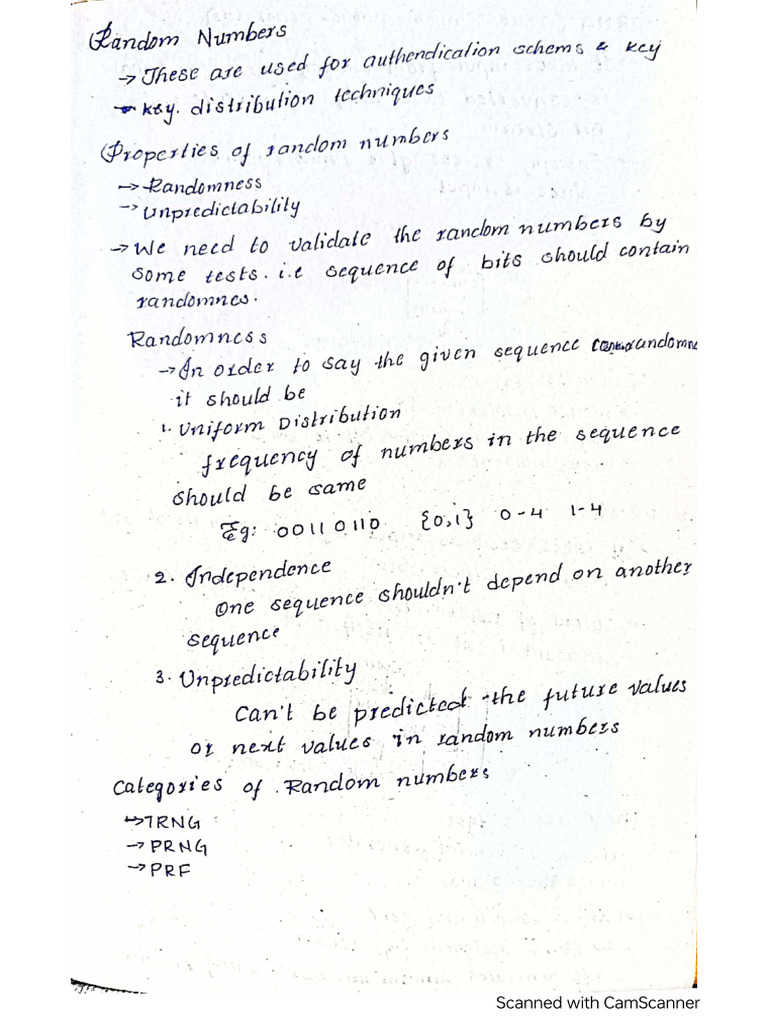 Random Numbers
→ These are used for authendication schems & key
→ key. distribution techniques
Properties of random numbers
→ Randomness
→ Unpredictability
→ We need to validate the random numbers by
some tests. i.e sequence of bits should contain
randomnes.
Randomness
→ In order to say the given sequence randomne
it should be
1. Uniform Distribution
frequency of numbers in the sequence
should be same
Eg: 00110110 {0,1} 0-4 1-4
2. Independence
One sequence shouldn't depend on another
sequence
3. Unpredictability
Can't be predicted the future values
or next values in random numbers
Categories of Random numbers
→ TRNG
→ PRNG
→ PRF
Scanned with CamScanner